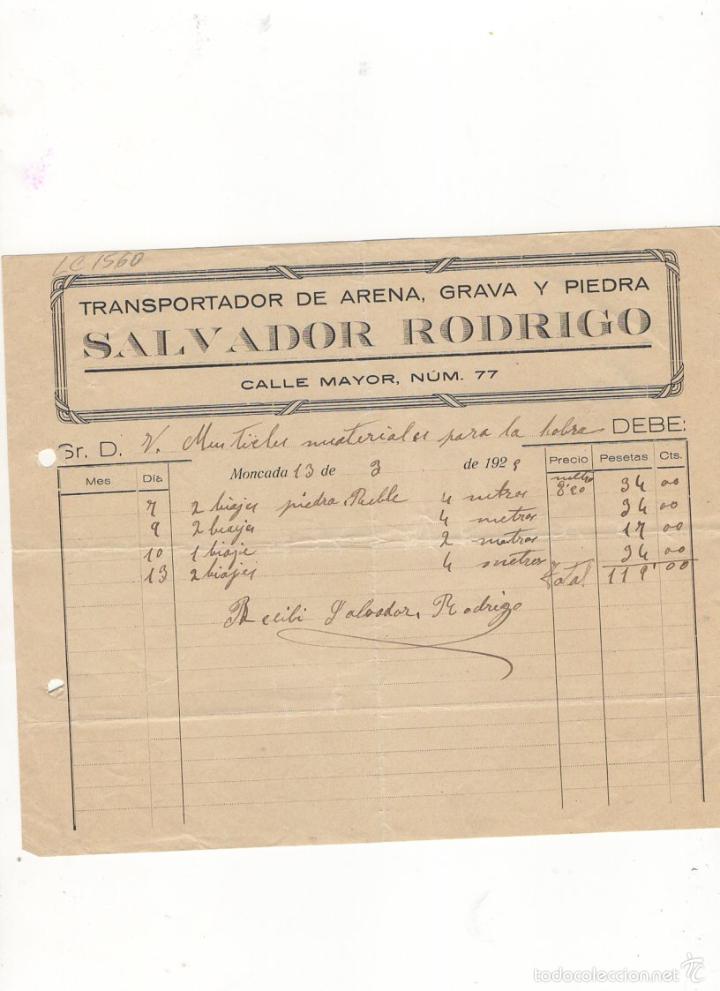 LC 1560
TRANSPORTADOR DE ARENA, GRAVA Y PIEDRA
SALVADOR RODRIGO
CALLE MAYOR, NÚM. 77
Sr. D. V. materiales para la hobra DEBE:
Mes Día Moncada 13 de 3 de 1929 Precio Pesetas Cts.
7 2 biajes piedra 4 metros metro 8'50 34 00
9 2 biajes 4 metros 34 00
10 1 biaje 2 metros 17 00
13 2 biajes 4 metros 34 00
Total 119'00
Recibi Salvador Rodrigo
todocoleccion.net